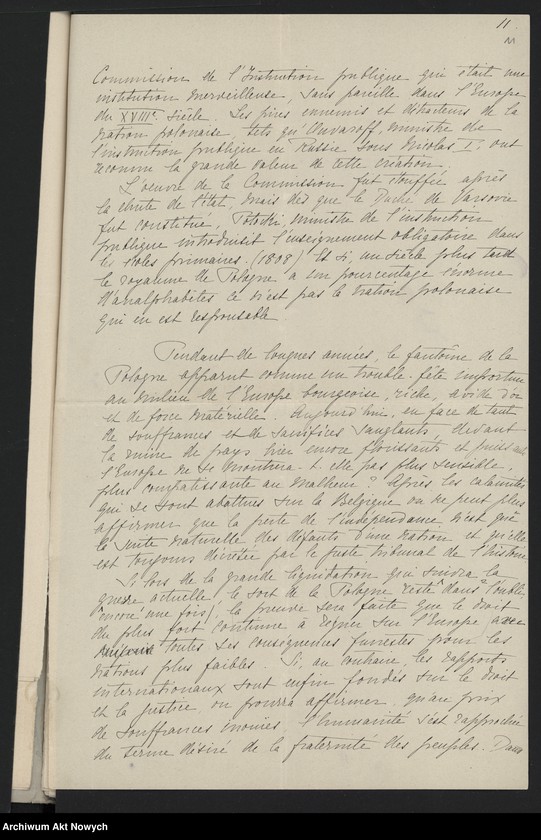 11.
Commission de l'Instruction publique qui était une
institution merveilleuse, sans pareille dans l'Europe
du XVIIIe Siècle. Les pires ennemis et détracteurs de la
nation polonaise, tels qu'Ouvaroff, ministre de
l'instruction publique en Russie sous Nicolas I, ont
reconnu la grande valeur de cette création.
L'oeuvre de la Commission fut étouffée après
la chute de l'état, mais dès que le Duché de Varsovie
fut constitué, Potocki, ministre de l'instruction
publique introduisit l'enseignement obligatoire dans
les écoles primaires. (1808) Et si, un siècle plus tard
le royaume de Pologne a un pourcentage énorme
d'analphabètes ce n'est pas la nation polonaise
qui en est responsable.
Pendant de longues années, le fantôme de la
Pologne apparut comme un trouble-fête importun
au milieu de l'Europe bourgeoise, riche, avide d'or
et de force matérielle. Aujourd'hui, en face de tant
de souffrances et de sacrifices sanglants, devant
la ruine de pays hier encore florissants et puissants
l'Europe ne se montrera-t-elle pas plus sensible,
plus compatissante au malheur? Après les calamités
qui se sont abattues sur la Belgique on ne peut plus
affirmer que la perte de l'indépendance n'est que
la suite naturelle des défauts d'une nation et qu'elle
est toujours décrétée par le juste tribunal de l'histoire
Si lors de la grande liquidation qui suivra la
guerre actuelle le sort de la Pologne reste dans l'oubli,
encore une fois, la preuve sera faite que le droit
du plus fort continue à régner sur l'Europe avec
toutes ses conséquences funestes pour les
nations plus faibles. Si, au contraire, les rapports
internationaux sont enfin fondés sur le droit
et la justice on pourra affirmer, qu'au prix
de souffrances inouïes l'humanité s'est rapprochée
du terme désiré de la fraternité des peuples. Dans
Archiwum Akt Nowych